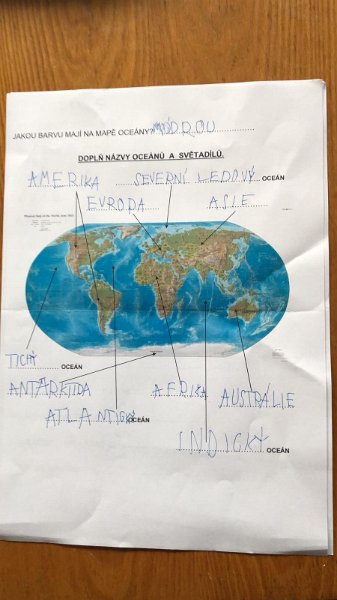 JAKOU BARVU MAJÍ NA MAPĚ OCEÁNY? MODROU
DOPLŇ NÁZVY OCEÁNŮ A SVĚTADÍLŮ.
AMERIKA SEVERNÍ LEDOVÝ OCEÁN
EVRODA ASIE
TICHÝ OCEÁN
ANTARKTIDA AFRIKA AUSTRÁLIE
ATLANTICKÝ OCEÁN
INDICKÝ OCEÁN